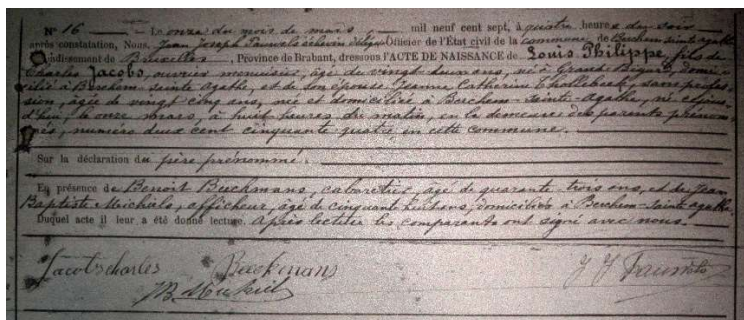 N° 16 — Le onze du mois de mars mil neuf cent sept, à quatre heures du soir
après constatation, Nous, Jean Joseph Pauwels échevin délégué Officier de l'État civil de la commune de Berchem sainte agathe
arrondissement de Bruxelles, Province de Brabant, dressons l'ACTE DE NAISSANCE de Louis Philippe, fils de
Charles Jacobs, ouvrier menuisier, âgé de vingt deux ans, né à Grand Bigard, domi-
cilié à Berchem-sainte-Agathe, et de son épouse Jeanne Catherine Thollebeek, sans profes-
sion, âgée de vingt cinq ans, née et domiciliée à Berchem-Sainte-Agathe, né
d'hui, le onze mars, à huit heures du matin, en la demeure des parents prénom-
més, numéro deux cent cinquante quatre en cette commune.
Sur la déclaration du père prénommé.
En présence de Benoit Beeckmans, cabaretier, âgé de quarante trois ans, et de Jean
Baptiste Michiels, afficheur, âgé de cinquante huit ans, domiciliés à Berchem-Sainte-agathe.
Duquel acte il leur a été donné lecture. Après lecture les comparants ont signé avec nous.
Jacobs charles Beeckmans J J Pauwels
JB Michiels